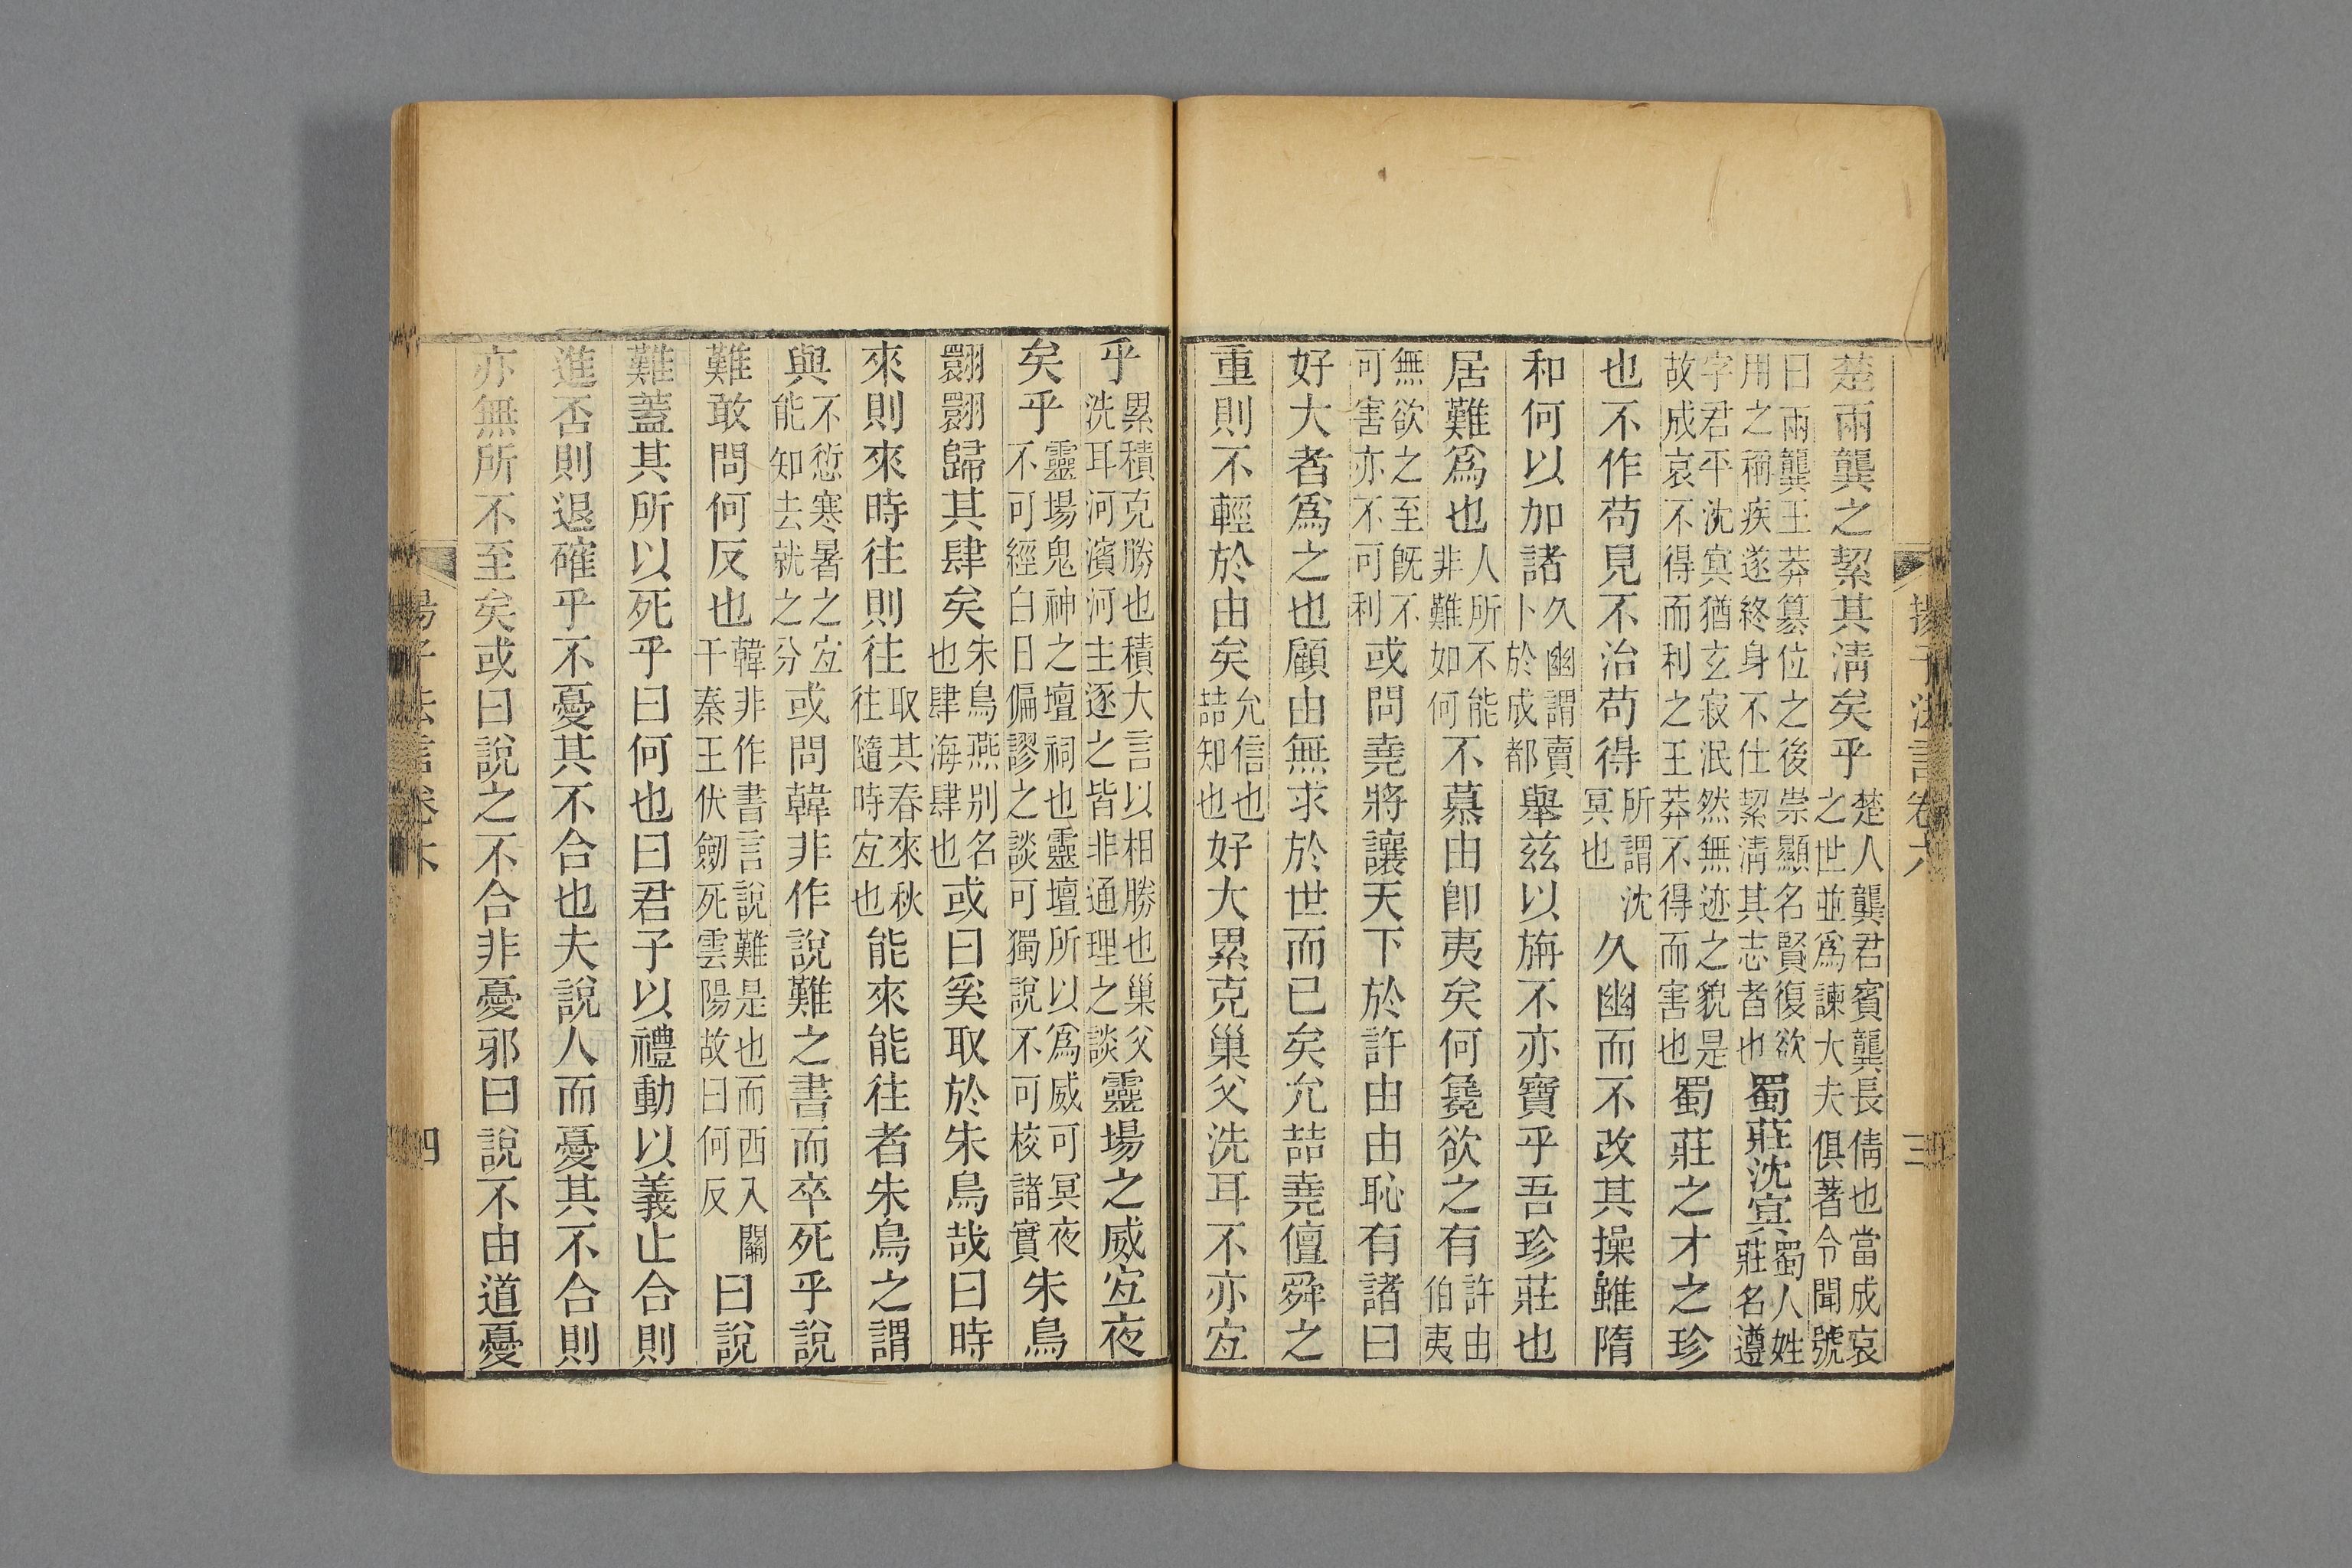 揚子法言卷六 三
楚兩龔之絜其清矣乎楚人龔君賓龔長倩也當成哀之世並爲諫大夫俱著令聞號
曰兩龔王莽篡位之後崇顯名賢復欲用之稱疾遂終身不仕絜清其志者也蜀莊沈冥蜀人姓莊名遵
字君平沈冥猶玄寂泯然無迹之貌是故成哀不得而利之王莽不得而害也蜀莊之才之珍
也不作苟見不治苟得所謂沈冥也久幽而不改其操雖隋
和何以加諸久幽謂賣卜於成都舉茲以旃不亦寶乎吾珍莊也
居難爲也人所不能非難如何不慕由卽夷矣何毚欲之有許由伯夷
無欲之至旣不可害亦不可利或問堯將讓天下於許由由恥有諸曰
好大者爲之也顧由無求於世而已矣允喆堯儃舜之
重則不輕於由矣允信也喆知也好大累克巢父洗耳不亦宐
乎累積克勝也積大言以相勝也巢父洗耳河濱河主逐之皆非通理之談靈場之威宐夜
矣乎靈場鬼神之壇祠也靈壇所以爲威可冥夜不可經白日偏謬之談可獨說不可核諸實朱鳥
翾翾歸其肆矣朱鳥燕別名也肆海肆也或曰奚取於朱鳥哉曰時
來則來時往則往取其春來秋往隨時宐也能來能往者朱鳥之謂
與不愆寒暑之宐能知去就之分或問韓非作說難之書而卒死乎說
難敢問何反也韓非作書言說難是也而西入關干秦王伏劒死雲陽故曰何反曰說
難蓋其所以死乎曰何也曰君子以禮動以義止合則
進否則退確乎不憂其不合也夫說人而憂其不合則
亦無所不至矣或曰說之不合非憂邪曰說不由道憂
揚子法言卷六 四